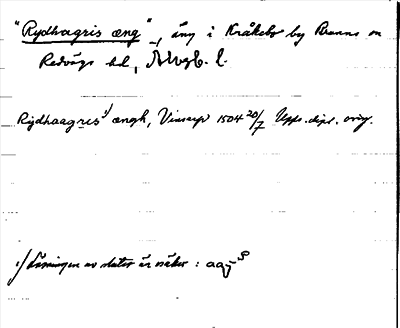 "Rydhagris æng", äng i Kråkebo by Brunns sn
Redvägs hd, Älvsb. l.
Rydhaagris¹⁾ ængh, Vinsarp 1504 20/7 Upps. dipl. orig.
¹⁾ Läsningen av slutet är osäker : aag